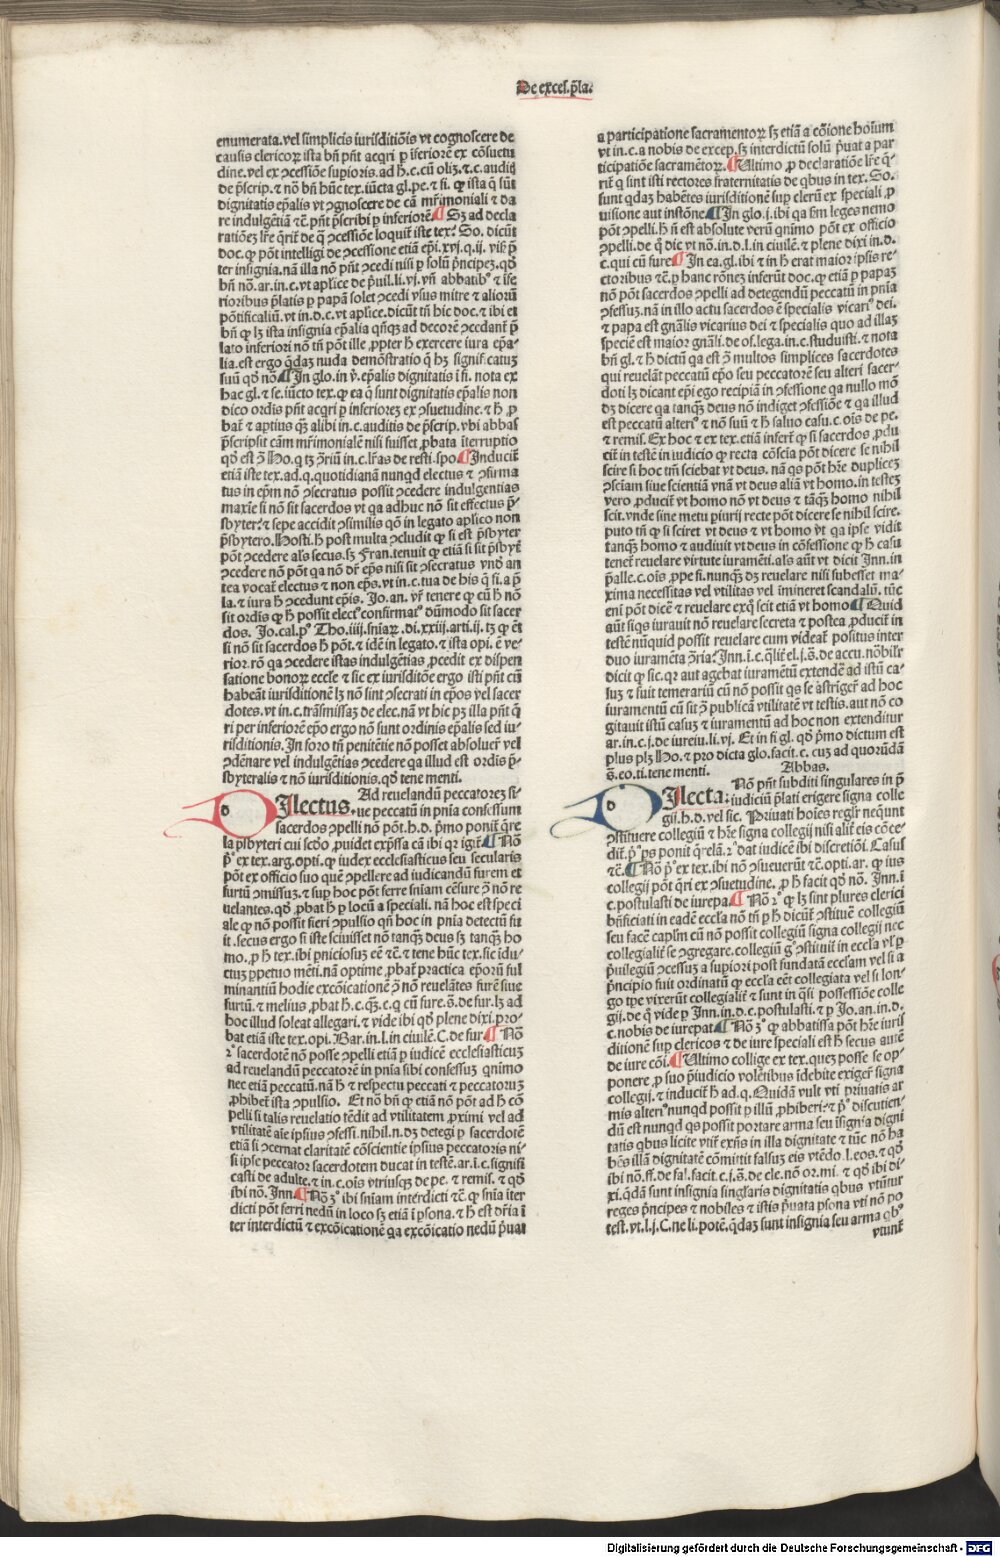 De excel. p̄la.
enumerata. vel simplicis iurisditiōis vt cognoscere de
causis clericoꝝ ista bn̄ pn̄t acqri ꝑ īferiorē ex cōsuetu
dine. vel ex ꝯcessiōe supioris. ad h̄. c. cū olī. ⁊. c. audi
de p̄scrip. ⁊ nō bn̄ hūc tex. iūcta gl. pe. ⁊ fi. ꝙ ista q̄ sūt
dignitatis ep̄alis vt ꝯgnoscere de cā mr̄imoniali ⁊ da
re indulgētiā ⁊c̄. pn̄t p̄scribi ꝑ inferiorē. ¶ Sꝫ ad decla
ratiōeꝫ lr̄e q̄rit̄ de q̄ ꝯcessiōe loquit̄ iste tex. So. dicūt
doc. ꝙ pōt intelligi de ꝯcessione etiā ep̄i. xvj. q. ij. visꝫ p̄
ter insignia. nā illa nō pn̄t ꝯcedi nisi ꝑ solū p̄ncipeꝫ. qđ
bn̄ nō. ar. in. c. vt aplice de p̄uil. li. vj. vn̄ abbatibꝰ ⁊ īfe
rioribus p̄latis ꝑ papā solet ꝯcedi vsus mitre ⁊ alioꝝ
pōtificaliū. vt in. d. c. vt aplice. dicūt tn̄ hic doc. ⁊ ibi et
bn̄ ꝙ lꝫ ista insignia ep̄alia qn̄qꝫ ad decorē ꝯcedant̄ p̄
lato inferiori nō tn̄ pōt ille ꝓpter h̄ exercere iura ep̄a
lia. est ergo q̄daꝫ nuda demōstratio q̄ hꝫ signif. catuꝫ
suū qđ nō. ¶ In glo. in ꝟ. ep̄alis dignitatis ī fi. nota ex
hac gl. ⁊ se. iūcto tex. ꝙ ea q̄ sunt dignitatis ep̄alis non
dico ordis pn̄t acqri ꝑ inferioreꝫ ex ꝯsuetudine. ⁊ h̄ ꝓ
bat̄ ⁊ aptius qꝫ alibi in. c. auditis de p̄scrip. vbi abbas
p̄scripsit cām mr̄imonialē nisi fuisset ꝓbata īterruptio
qđ est ꝯ̄ Ho. q tꝫ ꝯ̄riū in. c. lr̄as de resti. spo. ¶ Inducit̄
etiā iste tex. ad. q. quotidianā nunqd electus ⁊ ꝯfirma
tus in ep̄m nō ꝯsecratus possit ꝯcedere indulgentias
maxīe si nō sit sacerdos vt qa adhuc nō sit effectus p̄
sbyter. ⁊ sepe accidit ꝯsimilis qō in legato aplico non
p̄sbytero. Hosti. h̄ post multa ꝯcludit ꝙ si est p̄sbyter
pōt ꝯcedere als secus. sꝫ Fran. tenuit ꝙ etiā si sit p̄sbyt̄
ꝯcedere nō pōt qa nō dr̄ ep̄s nisi sit ꝯsecratus vnđ an
tea vocat̄ electus ⁊ non ep̄s. vt in. c. tua de his q̄ fi. a p̄
la. ⁊ iura h̄ ꝯcedunt ep̄is. Jo. an. vr̄ tenere ꝙ cū h̄ nō
sit ordis ꝙ h̄ possit electꝰ confirmatꝰ dūmodo sit sacer
dos. Jo. cal. pꝰ Tho. iiij. sniaꝝ. di. xxiij. arti. ij. tꝫ ꝙ et̄
si nō sit sacerdos h̄ pōt. ⁊ idē in legato. ⁊ ista opi. ē ve-
rior. rō qa ꝯcedere istas indulgētias ꝓcedit ex dispen
satione bonoꝝ eccl̄e ⁊ sic ex iurisditōe ergo isti pn̄t cū
habeāt iurisditionē lꝫ nō sint ꝯsecrati in ep̄os vel sacer
dotes. vt in. c. trāsmissaꝫ de elec. nā vt hic pꝫ illa pn̄t q̄
ri per inferiorē ep̄o ergo nō sunt ordinis ep̄alis sed iu-
risditionis. In foro tn̄ penitētie nō posset absoluer̄ vel
ꝯdēnare vel indulgētias ꝯcedere qa illud est ordis p̄-
sbyteralis ⁊ nō iurisditionis. qđ tene menti.
DIlectus. Ad reuelandū peccatoreꝫ si-
ue peccatū in pnia confessum
sacerdos ꝯpelli nō pōt. h. d. p̄mo ponit̄ q̄re
la p̄sbyteri cui scđo ꝓuidet exp̄ssa cā ibi qr igit̄. ¶ Nō
p̄ꝰ ex tex. arg. opti. ꝙ iudex ecclesiasticus seu secularis
pōt ex officio suo quē ꝯpellere ad iudicandū furem et
furtū ꝯmissuꝫ. ⁊ sup hoc pōt ferre sniam cēsure ꝯ̄ nō re
uelantes. qđ ꝓbat h̄ ꝑ locū a speciali. nā hoc est speci
ale ꝙ nō possit fieri ꝯpulsio qn̄ hoc in pnia detectū fu
it. secus ergo si iste sciuisset nō tanqꝫ deus sꝫ tanqꝫ ho
mo. ꝓ h̄ tex. ibi ꝑniciosuꝫ eē ⁊c̄. ⁊ tene hūc tex. sic īdu-
ctuꝫ ꝑpetuo mēti. nā optime ꝓbat̄ practica ep̄oꝝ ful
minantiū hodie excōicationē ꝯ̄ nō reuelātes furē siue
furtū. ⁊ melius ꝓbat h̄. c. qꝫ. c. q cū fure. s̄. de fur. lꝫ ad
hoc illud soleat allegari. ⁊ vide ibi qđ plene dixi. pro-
bat etiā iste tex. opi. Bar. in. l. in ciuilē. C. de fur. ¶ Nō
2ꝰ sacerdotē nō posse ꝯpelli etiā ꝑ iudicē ecclesiasticuꝫ
ad reuelandū peccatorē in pnia sibi confessuꝫ qnimo
nec etiā peccatū. nā h̄ ⁊ respectu peccati ⁊ peccatoruꝫ
ꝓhibet̄ ista ꝯpulsio. Et nō bn̄ ꝙ etiā nō pōt ad h̄ cō
pelli si talis reuelatio tēdit ad vtilitatem ꝓximi vel ad
vtilitatē aīe ipsius ꝯfessi. nihil. n. dꝫ detegi ꝑ sacerdotē
etiā si ꝯcernat claritatē cōscientie ipsius peccatoris ni-
si ipse peccator sacerdotem ducat in testē. ar. i. c. signifi
casti de adulte. ⁊ in. c. oīs vtriusqꝫ de pe. ⁊ remis. ⁊ qđ
ibi nō. Inn. ¶ Nō 3ꝰ ibi sniam interdicti ⁊c̄. ꝙ snia īter
dicti pōt ferri nedū in loco sꝫ etiā ī psona. ⁊ h̄ est dr̄ia ī
ter interdictū ⁊ excōicationē qa excōicatio nedū p̄uat
a participatione sacramentoꝝ sꝫ etiā a cōione hoīum
vt in. c. a nobis de excep. sꝫ interdictū solū p̄uat a par
ticipatiōe sacramētoꝝ. ¶ Ultimo ꝓ declaratiōe lr̄e q̄-
rit̄ q sint isti rectores fraternitatis de qbus in tex. So.
sunt qdaꝫ habētes iurisditionē sup clerū ex speciali ꝓ
uisione aut instōne. ¶ In glo. j. ibi qa fm leges nemo
pōt ꝯpelli. h̄ n̄ est absolute verū qnimo pōt ex officio
ꝯpelli. de q̄ dic vt nō. in. d. l. in ciuilē. ⁊ plene dixi in. d.
c. qui cū fure. ¶ In ea. gl. ibi ⁊ in h̄ erat maior ipsis re-
ctoribus ⁊c̄. ꝑ hanc rōneꝫ inferūt doc. ꝙ etiā ꝑ papaꝫ
nō pōt sacerdos ꝯpelli ad detegendū peccatū in pnia
ꝯfessuꝫ. nā in illo actu sacerdos ē specialis vicariꝰ dei.
⁊ papa est gn̄alis vicarius dei ⁊ specialis quo ad illaꝫ
speciē est maior gnāli. de of. lega. in. c. studuisti. ⁊ nota
bn̄ gl. ⁊ h̄ dictū qa est ꝯ̄ multos simplices sacerdotes
qui reuelāt peccatū ep̄o seu peccatorē seu alteri sacer-
doti lꝫ dicant ep̄i ego recipiā in ꝯfessione qa nullo mō
dꝫ dicere qa tanqꝫ deus nō indiget ꝯfessiōe ⁊ qa illud
est peccatū alteriꝰ ⁊ nō suū ⁊ h̄ saluo casu. c. oīs de pe.
⁊ remis. Ex hoc ⁊ ex tex. etiā infert̄ ꝙ si sacerdos ꝓdu
cit̄ in testē in iudicio ꝙ recta cōscia pōt dicere se nihil
scire si hoc tm̄ sciebat vt deus. nā qs pōt hr̄e dupliceꝫ
ꝯsciam siue scientiā vnā vt deus aliā vt homo. in testeꝫ
vero ꝓducit̄ vt homo nō vt deus ⁊ tāqꝫ homo nihil
scit. vnde sine metu piurij recte pōt dicere se nihil scire.
puto tn̄ ꝙ si sciret vt deus ⁊ vt homo v̄t qa ipse vidit
tanqꝫ homo ⁊ audiuit vt deus in cōfessione ꝙ h̄ casu
tenet̄ reuelare virtute iuramēti. als aūt vt dicit Inn. in
p̄alle. c. oīs. ꝓpe fi. nunqꝫ dꝫ reuelare nisi subesset ma-
xima necessitas vel vtilitas vel īmineret scandalū. tūc
eni pōt dicē ⁊ reuelare exq̄ scit etiā vt homo ¶ Quid
aūt siqs iurauit nō reuelare secreta ⁊ postea ꝓducit̄ in
testē nūquid possit reuelare cum videat̄ positus inter
duo iuramēta ꝯ̄ria. Inn. ī. c. qlit̄ el. j. s̄. de accu. nōbilr̄
dicit ꝙ sic. qr aut agebat iuramētū extendē ad istū ca-
suꝫ ⁊ fuit temerariū cū nō possit qs se āstriger̄ ad hoc
iuramentū cū sit ꝯ̄ publicā vtilitatē vt testis. aut nō co
gitauit istū casuꝫ ⁊ iuramentū ad hoc non extenditur
ar. in. c. j. de iureiu. li. vj. Et in fi gl. qđ p̄mo dictum est
plus plꝫ Ho. ⁊ pro dicta glo. facit. c. cuꝫ ad quorūdā
s̄. eo. ti. tene menti. Abbas.
DIlecta. Nō pn̄t subditi singulares in p̄
iudiciū p̄lati erigere signa colle
gij. h. d. vel sic. Priuati hoīes reglr̄ nequnt
ꝯstituere collegiū ⁊ hr̄e signa collegij nisi alit̄ eis cōce-
dit̄. p̄ꝰ ps ponit q̄relā. 2ꝰ dat iudicē ibi discretiōi. Casus
⁊c̄. ¶ Nō p̄ꝰ ex tex. ibi nō ꝯsueuerūt ⁊c̄. opti. ar. ꝙ ius
collegij pōt q̄ri ex ꝯsuetudine. ꝓ h̄ facit qđ nō. Inn. ī
c. postulasti de iurepa. ¶ Nō 2ꝰ ꝙ lꝫ sint plures clerici
bn̄ficiati in eadē eccl̄a nō tn̄ ꝑ h̄ dicūt̄ ꝯstituē collegiū
seu facē caplm̄ cū nō possit collegiū signa collegij nec
collegialit̄ se ꝯgregare. collegiū gꝰ ꝯstituit̄ in eccl̄a vl̄ ꝑ
p̄uilegiū ꝯcessuꝫ a supiori post fundatā eccl̄am vel si a
p̄ncipio fuit ordinatū ꝙ eccl̄a eēt collegiata vel si lon-
go tpe vixerūt collegialit̄ ⁊ sunt in q̄si possessiōe colle
gij. de q̄ vide ꝑ Inn. in. d. c. postulasti. ⁊ ꝑ Jo. an. in. d.
c. nobis de iurepat. ¶ Nō 3ꝰ ꝙ abbatissa pōt hr̄e iuris
ditionē sup clericos ⁊ de iure speciali est h̄ secus autē
de iure cōi. ¶ Ultimo collige ex tex. queꝫ posse se op-
ponere ꝓ suo p̄iudicio volētibus īdebite exiger̄ signa
collegij. ⁊ inducit̄ h̄ ad. q. Quidā vult vti priuatis ar
mis alteriꝰ nunqd possit ꝑ illū ꝓhiberi. ⁊ p̄ꝰ discutien-
dū est nunqd qs possit portare arma seu īsignia digni
tatis qbus licite vtit̄ exn̄s in illa dignitate ⁊ tūc nō ha
bēs illā dignitatē cōmittit falsuꝫ eis vtēdo. l. eos. ⁊ qđ
ibi nō. ff. de fal. facit. c. j. s̄. de ele. nō or. mi. ⁊ qđ ibi di-
xi. qdā sunt insignia singlaris dignitatis qbus vtūtur
reges p̄ncipes ⁊ nobiles ⁊ istis p̄uata psona vti nō po
test. vt. l. j. C. ne li. potē. qdaꝫ sunt insignia seu arma qbꝰ
vtunt̄
Digitalisierung gefördert durch die Deutsche Forschungsgemeinschaft - DFG